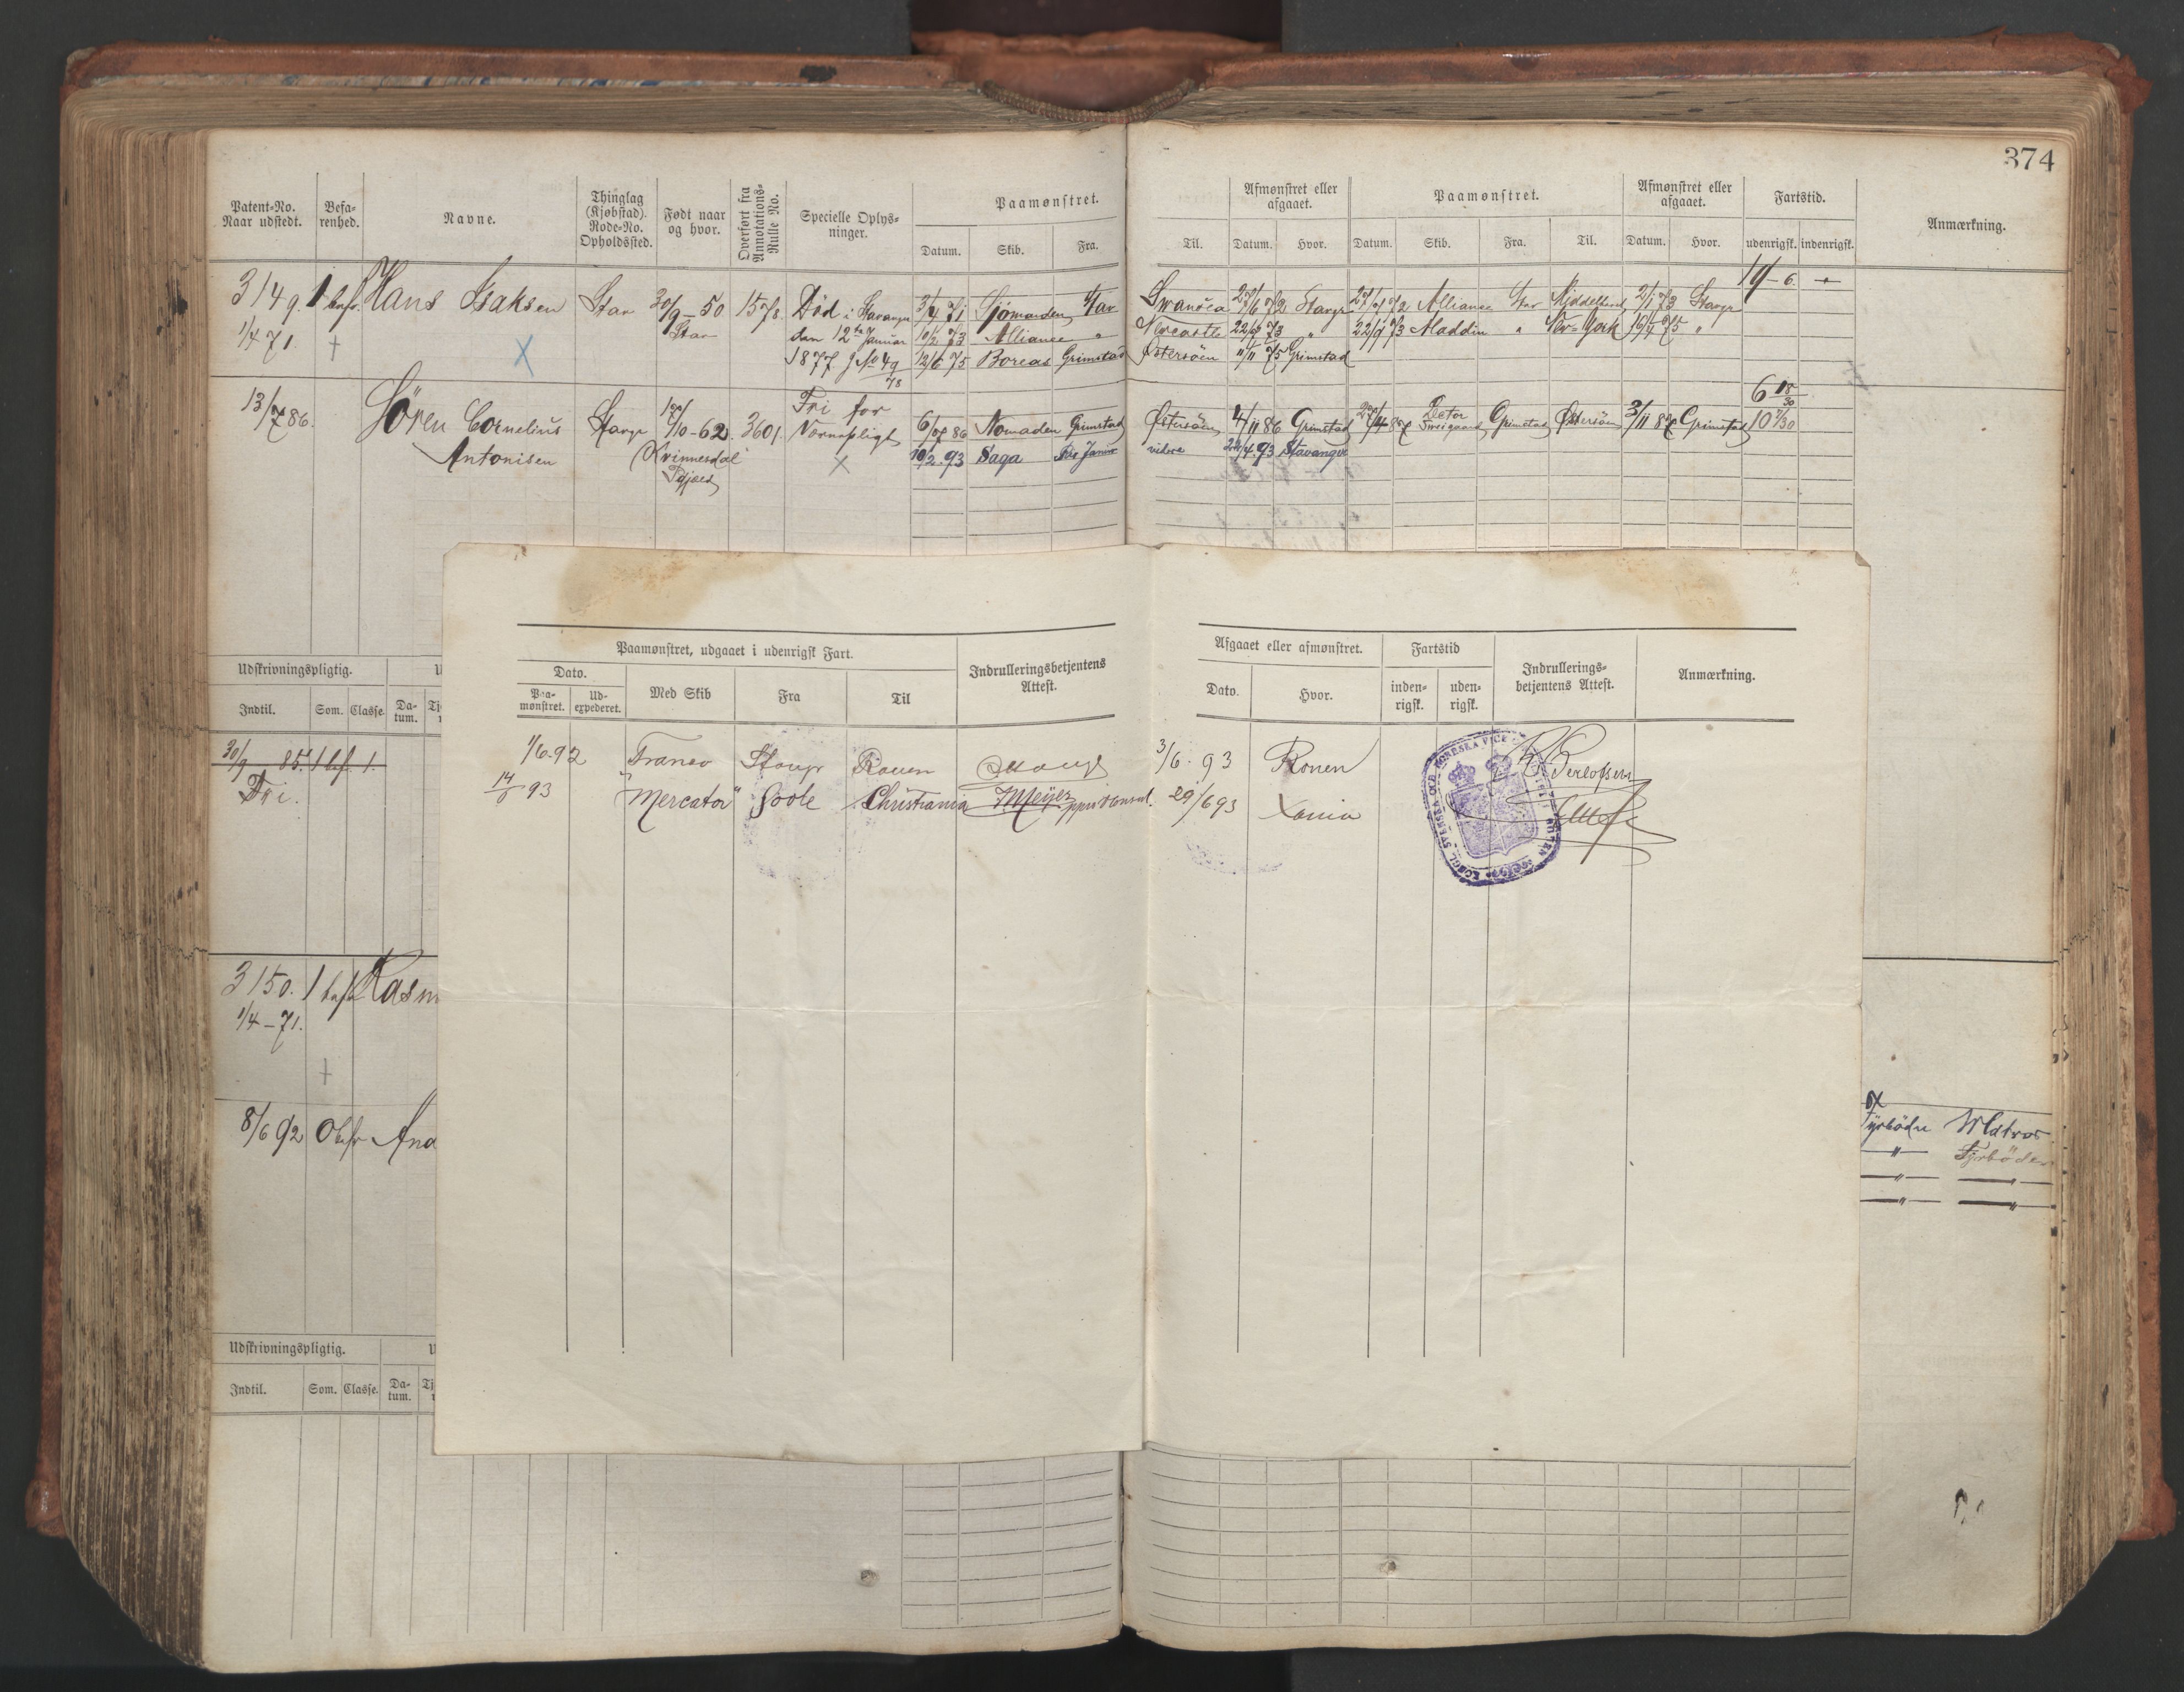 374
Patent-No. Naar udstedt. Befa-renhed. Navne. Thinglag (Kjøbstad). Rode-No. Opholdssted. Født naar og hvor. Overført fra Annotations-Rulle No. Specielle Oplys-ninger. Paamønstret. Afmønstret eller afgaaet. Paamønstret. Afmønstret eller afgaaet. Fartstid. Anmærkning.
Datum. Skib. Fra. Til. Datum. Hvor. Datum. Skib. Fra. Til. Datum. Hvor. udenrigsk. indenrigsk.
19-6.
3149. 1 bef. Hans Isaksen Stav 30/9-50 1578. Død i Stavanger 3/4 71 Sjømanden Stav Swansea 27/6 72 Stavgr 27/9 72 Alliance Stav Middelhavet 2/1 73 Stavgr
1/4 71. Stav den 12te Januar 10/2 73 Alliance " Newcastle 22/8 73 " 22/9 73 Aladdin " New-York 16/4 75 "
1877 J No 49/78 12/6 75 Boreas Grimstad Østersöen 11/11 75 Grimstad
6 18/30
13/7 86. Sören Cornelius Stavgr 17/10-62. 3601. Fri for 6/7 86 Nomaden Grimstad Østersöen 4/11 86 Grimstad 27/4 87 Grimstad Østersöen 3/11 87 Grimstad 10 7/30
Antonisen Kvinnesdal Værnepligt 10/2 93 Saga Rio Janeiro videre 22/4 93 Stavanger
Pgjæld
Paamønstret, udgaaet i udenrigsk Fart. Indrulleringsbetjentens Attest. Afgaaet eller afmønstret. Fartstid Indrullerings-betjentens Attest. Anmærkning.
Dato. Med Skib Fra Til Dato. Hvor. inden-rigsk. uden-rigsk.
Paa-mønstret. Ud-expederet.
1/6.92 Franco Stavgr Rouen 3/6.93 Rouen
14/6 93 "Mercator" Goole Christiania Meyer 29/6 93 Xania
Udskrivningspligtig.
Indtil. Som. Classe. Da-tum.
30/9 85. 1 bef. 1.
Fri.
3150. 1 bef. Rasm
1/4-71.
8/6 92 Obefr And
Fyrböder Matros
" Fyrböder
" "
" "
Udskrivningspligtig.
Indtil. Som. Classe. Da-tum.